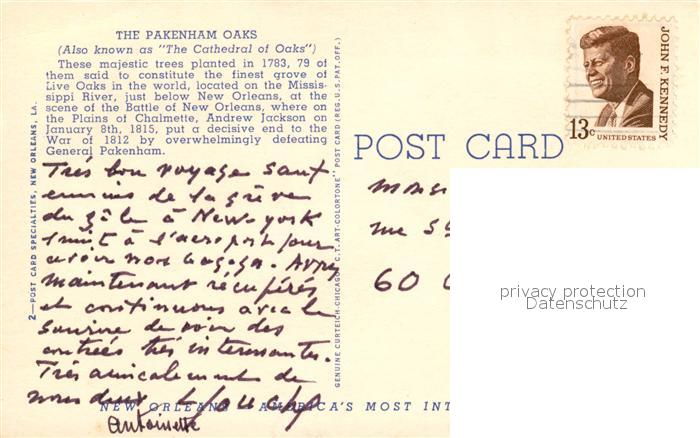 THE PAKENHAM OAKS
(Also known as "The Cathedral of Oaks")
These majestic trees planted in 1783, 79 of
them said to constitute the finest grove of
Live Oaks in the world, located on the Missis-
sippi River, just below New Orleans, at the
scene of the Battle of New Orleans, where on
the Plains of Chalmette, Andrew Jackson on
January 8th, 1815, put a decisive end to the
War of 1812 by overwhelmingly defeating
General Pakenham.
Très bon voyage sauf
ennuis de la grève
du à New york
1 nuit à l'aeroport pour
avoir nos bagages.
maintenant récupérés
et continuons avec le
sourire de voir des
contrées très interessantes.
Très amicalement de
nous deux
Antoinette
2—POST CARD SPECIALTIES, NEW ORLEANS, LA.
GENUINE CURTEICH-CHICAGO "C.T. ART-COLORTONE" POST CARD (REG. U.S. PAT. OFF.)
POST CARD
JOHN F. KENNEDY
13c
UNITED STATES
60
privacy protection
Datenschutz
NEW ORLEANS AMERICA'S MOST INT